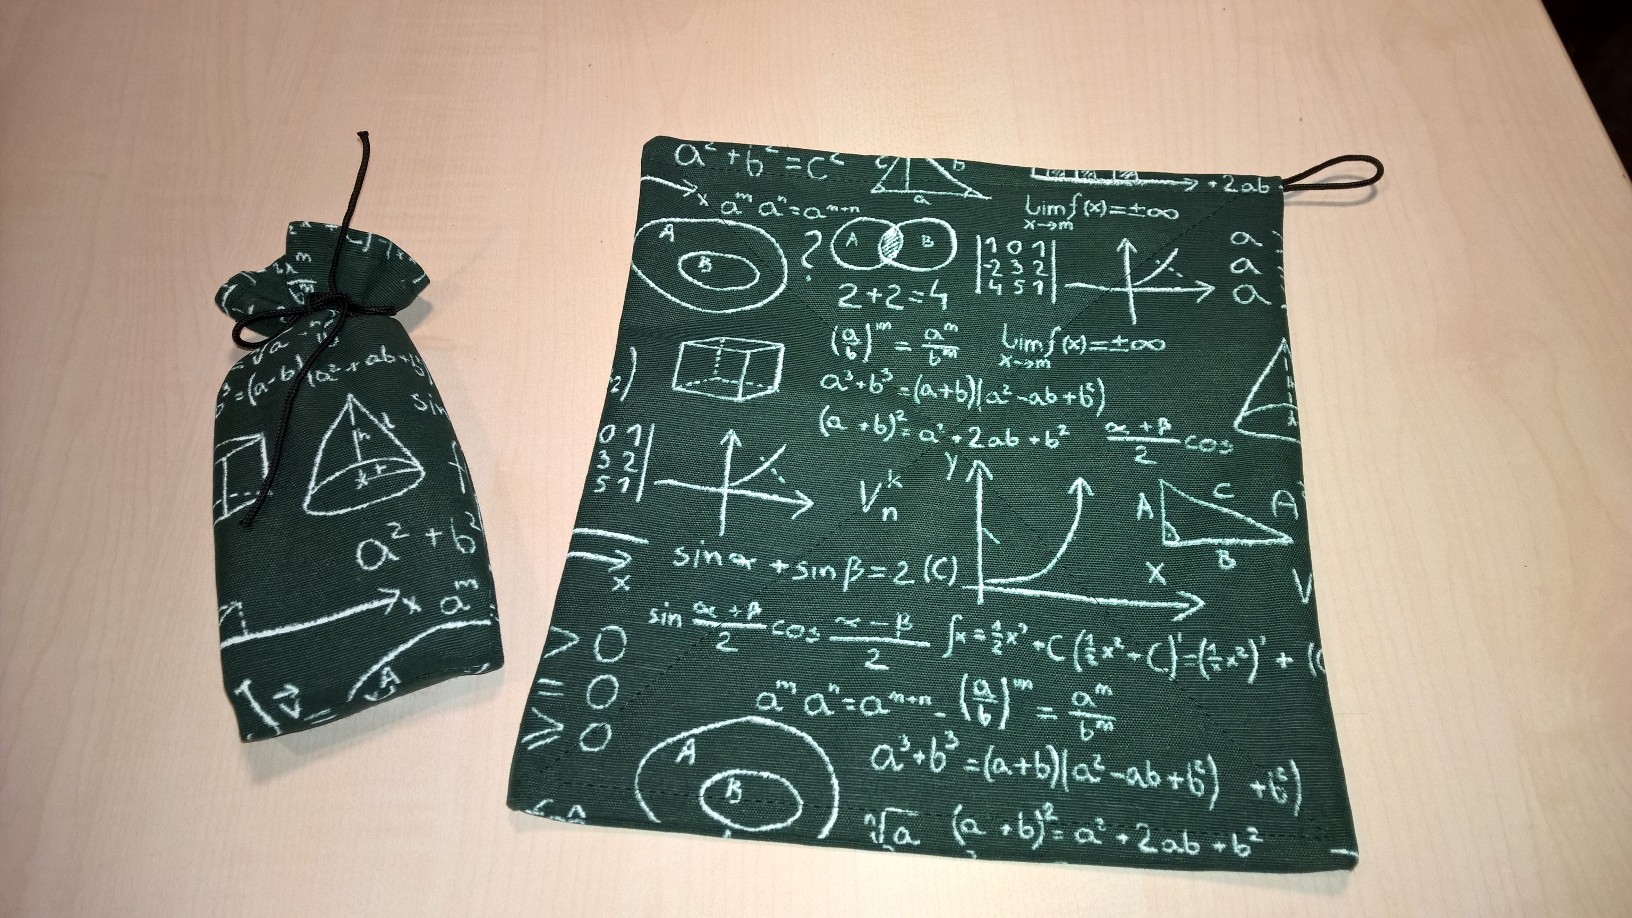 √a
³=(a-b)(a²+ab+b
sin
h
r
a²+b²
x
aᵐ
A
V⃗=
a²+b²=c²
c
b
a
+2ab
x
aᵐaⁿ=aᵐ⁺ⁿ
lim f(x)=±∞
x→m
A
B
?
A
B
1 0 1
-2 3 2
4 5 1
a
a
a
2+2=4
(a/b)ᵐ = aᵐ/bᵐ
lim f(x)=±∞
x→m
a³+b³=(a+b)(a²-ab+b²)
(a+b)²=a²+2ab+b²
α+β/2 cos
0 1
3 2
5 1
Vₙᵏ
y
A
C
B
A²
x
X
V
sin α + sin β = 2 (C)
sin α+β/2 cos α-β/2 ∫x=½x²+C (½x²+C)'=(½x²)'+(C
>0
=0
≥0
aᵐaⁿ=aᵐ⁺ⁿ
(a/b)ᵐ = aᵐ/bᵐ
A
B
a³+b³=(a+b)(a²-ab+b²)
+b²)
ⁿ√a
(a+b)²=a²+2ab+b²